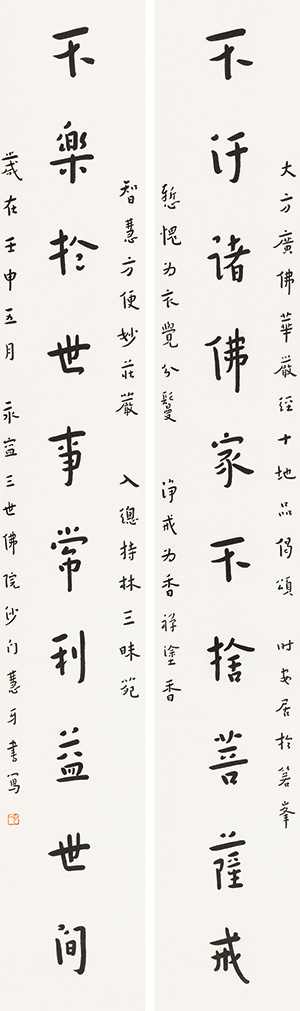 大方廣佛華嚴經十地品偈頌 时安居於峯
不汙諸佛家不捨菩薩戒
慙愧为衣覺分鬘 淨戒为香禅塗香
智慧方便妙莊嚴 入總持林三昧苑
不樂於世事常利益世間
歲在壬申五月 永寍三世佛院沙门慧牙書寫